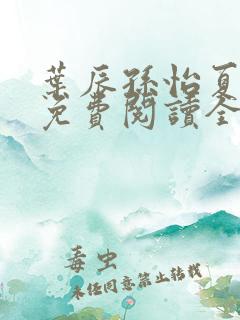 葉辰孫怡夏
免費閱讀全
毒虫
未经同意禁止转载